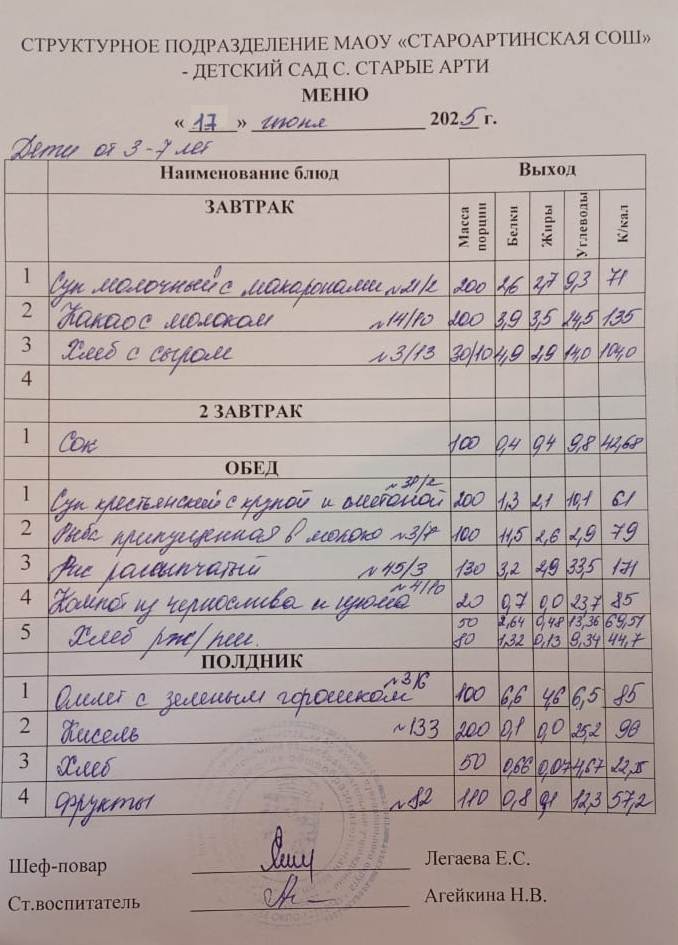 СТРУКТУРНОЕ ПОДРАЗДЕЛЕНИЕ МАОУ «СТАРОАРТИНСКАЯ СОШ»
- ДЕТСКИЙ САД С. СТАРЫЕ АРТИ
МЕНЮ
« 17 » июня 2025 г.
Дети от 3-7 лет
Наименование блюд Выход
ЗАВТРАК Масса порции Белки Жиры Углеводы К/кал
1 Суп молочный с макаронами №21/2 200 2,6 2,7 9,3 71
2 Какао с молоком №14/10 200 3,9 3,5 24,5 135
3 Хлеб с сыром №3/13 30/10 4,9 2,9 14,0 104,0
4
2 ЗАВТРАК
1 Сок 100 0,4 0,4 9,8 42,68
ОБЕД
1 Суп крестьянский с крупой и сметаной 200 1,3 2,1 10,1 61
2 Рыба припущенная в молоке 100 11,5 2,6 2,9 79
3 Рис рассыпчатый №45/3 130 3,2 2,9 33,5 171
4 Компот из чернослива и изюма №4/10 20 0,7 0,0 23,7 85
5 Хлеб рж/пш. 50 2,64 0,48 13,36 69,51
80 1,32 0,13 9,34 44,7
ПОЛДНИК
1 Омлет с зеленым горошком №3/6 100 6,6 4,6 6,5 85
2 Кисель №133 200 0,1 0,0 25,2 96
3 Хлеб 50 0,66 0,07 4,67
4 Фрукты №82 110 0,8 0,1 12,3 57,2
Шеф-повар Легаева Е.С.
Ст.воспитатель Агейкина Н.В.